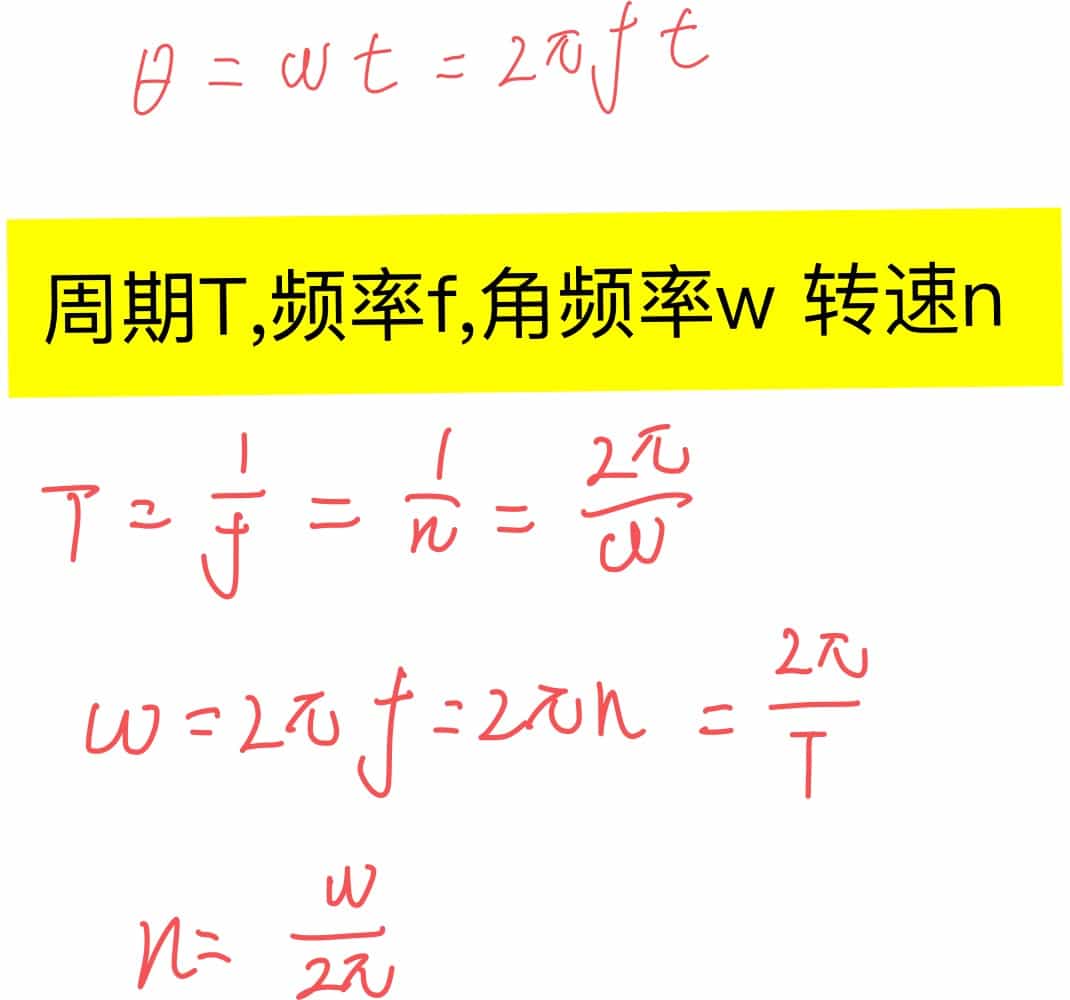 θ = ωt = 2πft
周期T,频率f,角频率w 转速n
T = 1/f = 1/n = 2π/ω
ω = 2πf = 2πn = 2π/T
n = ω/2π